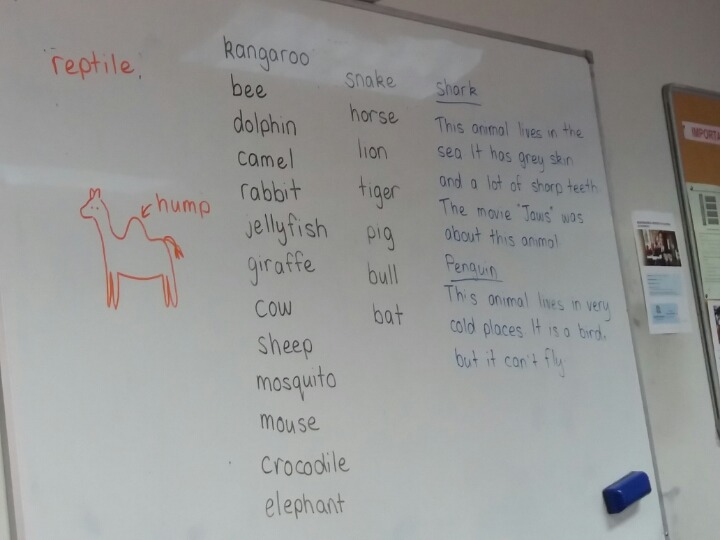 reptile.
hump
kangaroo
bee
dolphin
camel
rabbit
jellyfish
giraffe
cow
sheep
mosquito
mouse
crocodile
elephant
snake
horse
lion
tiger
pig
bull
bat
shark
This animal lives in the
sea It has grey skin
and a lot of sharp teeth.
The movie "Jaws" was
about this animal
Penguin
This animal lives in very
cold places. It is a bird,
but it can't fly